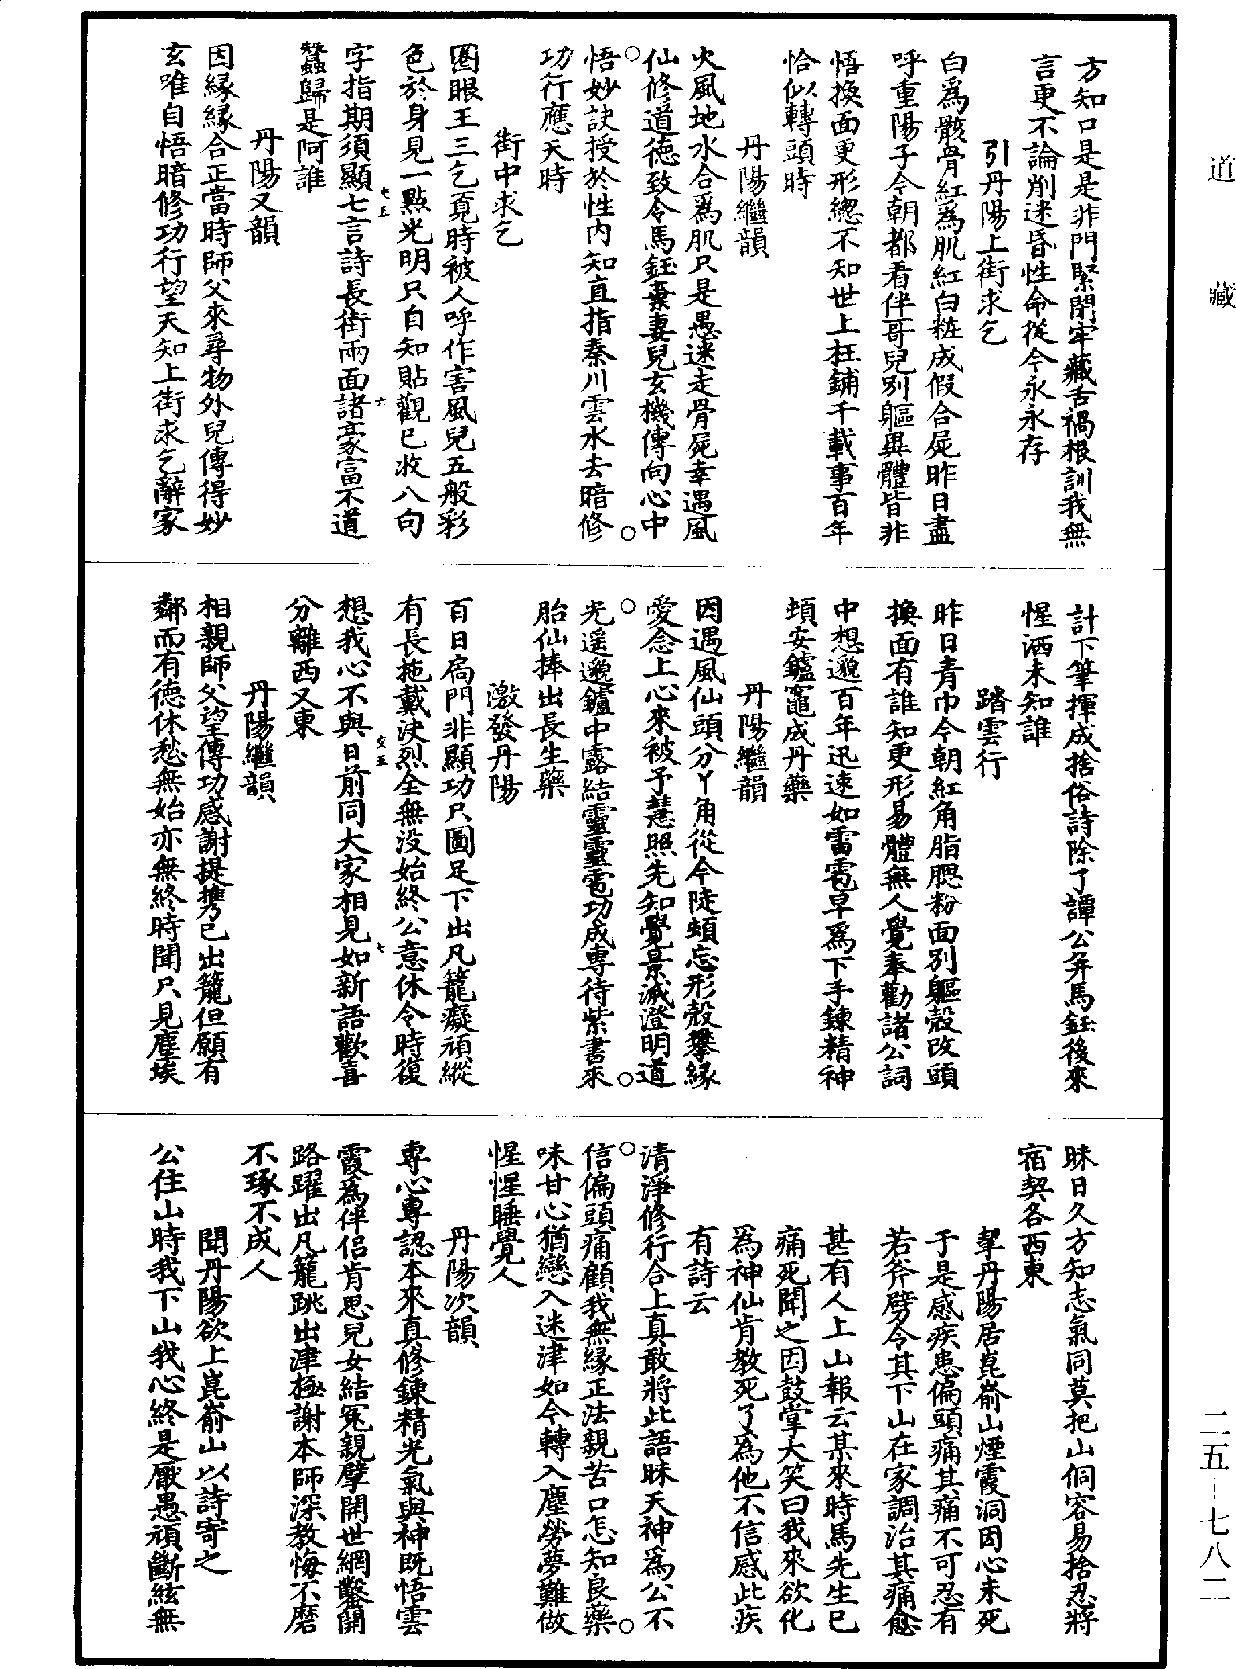 道藏
方知口是是非門緊閉牢藏舌禍根訓我無
言更不論削迷昏性命從今永永存
引丹陽上街求乞
白爲骸骨紅爲肌紅白粧成假合屍昨日盡
呼重陽子今朝都看伴哥兒別軀異體皆非
悟換面更形總不知世上枉鋪千載事百年
恰似轉頭時
丹陽繼韻
火風地水合爲肌只是愚迷走骨屍幸遇風
仙修道德致令馬鈺棄妻兒玄機傳向心中
悟妙訣授於性內知直指秦川雲水去暗修
功行應天時
街中求乞
圈眼王三乞覔時被人呼作害風兒五般彩
色於身見一點光明只自知貼觀已收八句
字指期須顯七言詩長街兩面諸豪富不道
蠶歸是阿誰
丹陽又韻
因緣緣合正當時師父來尋物外兒傳得妙
玄唯自悟暗修功行望天知上街求乞辭家
計下筆揮成捨俗詩除了譚公并馬鈺後來
惺洒未知誰
踏雲行
昨日青巾今朝紅角脂腮粉面別軀殼改頭
換面有誰知更形易體無人覺奉勸諸公詞
中想邈百年迅速如雷雹早爲下手鍊精神
頊安鑪竈成丹藥
丹陽繼韻
因遇風仙頭分丫角從今陡頓忘形殼攀緣
愛念上心來被予慧照先知覺景滅澄明道
光遥邈鑪中露結靈靈雹功成專待紫書來
胎仙捧出長生藥
激發丹陽
百日扄門非顯功只圖足下出凡籠癡頑縱
有長拖戴決烈全無没始終公意休令時復
想我心不與日前同大家相見如新語歡喜
分離西又東
丹陽繼韻
相親師父望傳功感謝提攜已出籠但願有
鄰而有德休愁無始亦無終時聞只見塵埃
昧日久方知志氣同莫把山侗容易捨忍將
宿契各西東
犁丹陽居崑崳山煙霞洞因心未死
于是感疾患偏頭痛其痛不可忍有
若斧劈令其下山在家調治其痛愈
甚有人上山報云某來時馬先生已
痛死聞之因鼓掌大笑曰我來欲化
爲神仙肯教死了爲他不信感此疾
有詩云
清淨修行合上真敢將此語昧天神爲公不
信偏頭痛顧我無緣正法親苦口怎知良藥
味甘心猶戀入迷津如今轉入塵勞夢難做
惺惺睡覺人
丹陽次韻
專心專認本來真修鍊精光氣與神既悟雲
霞爲伴侣肯思兒女結冤親擘開世網鑿開
路躍出凡籠跳出津極謝本師深教悔不磨
不琢不成人
聞丹陽欲上崑崳山以詩寄之
公住山時我下山我心終是厭愚頑斷絃無
二五-七八二